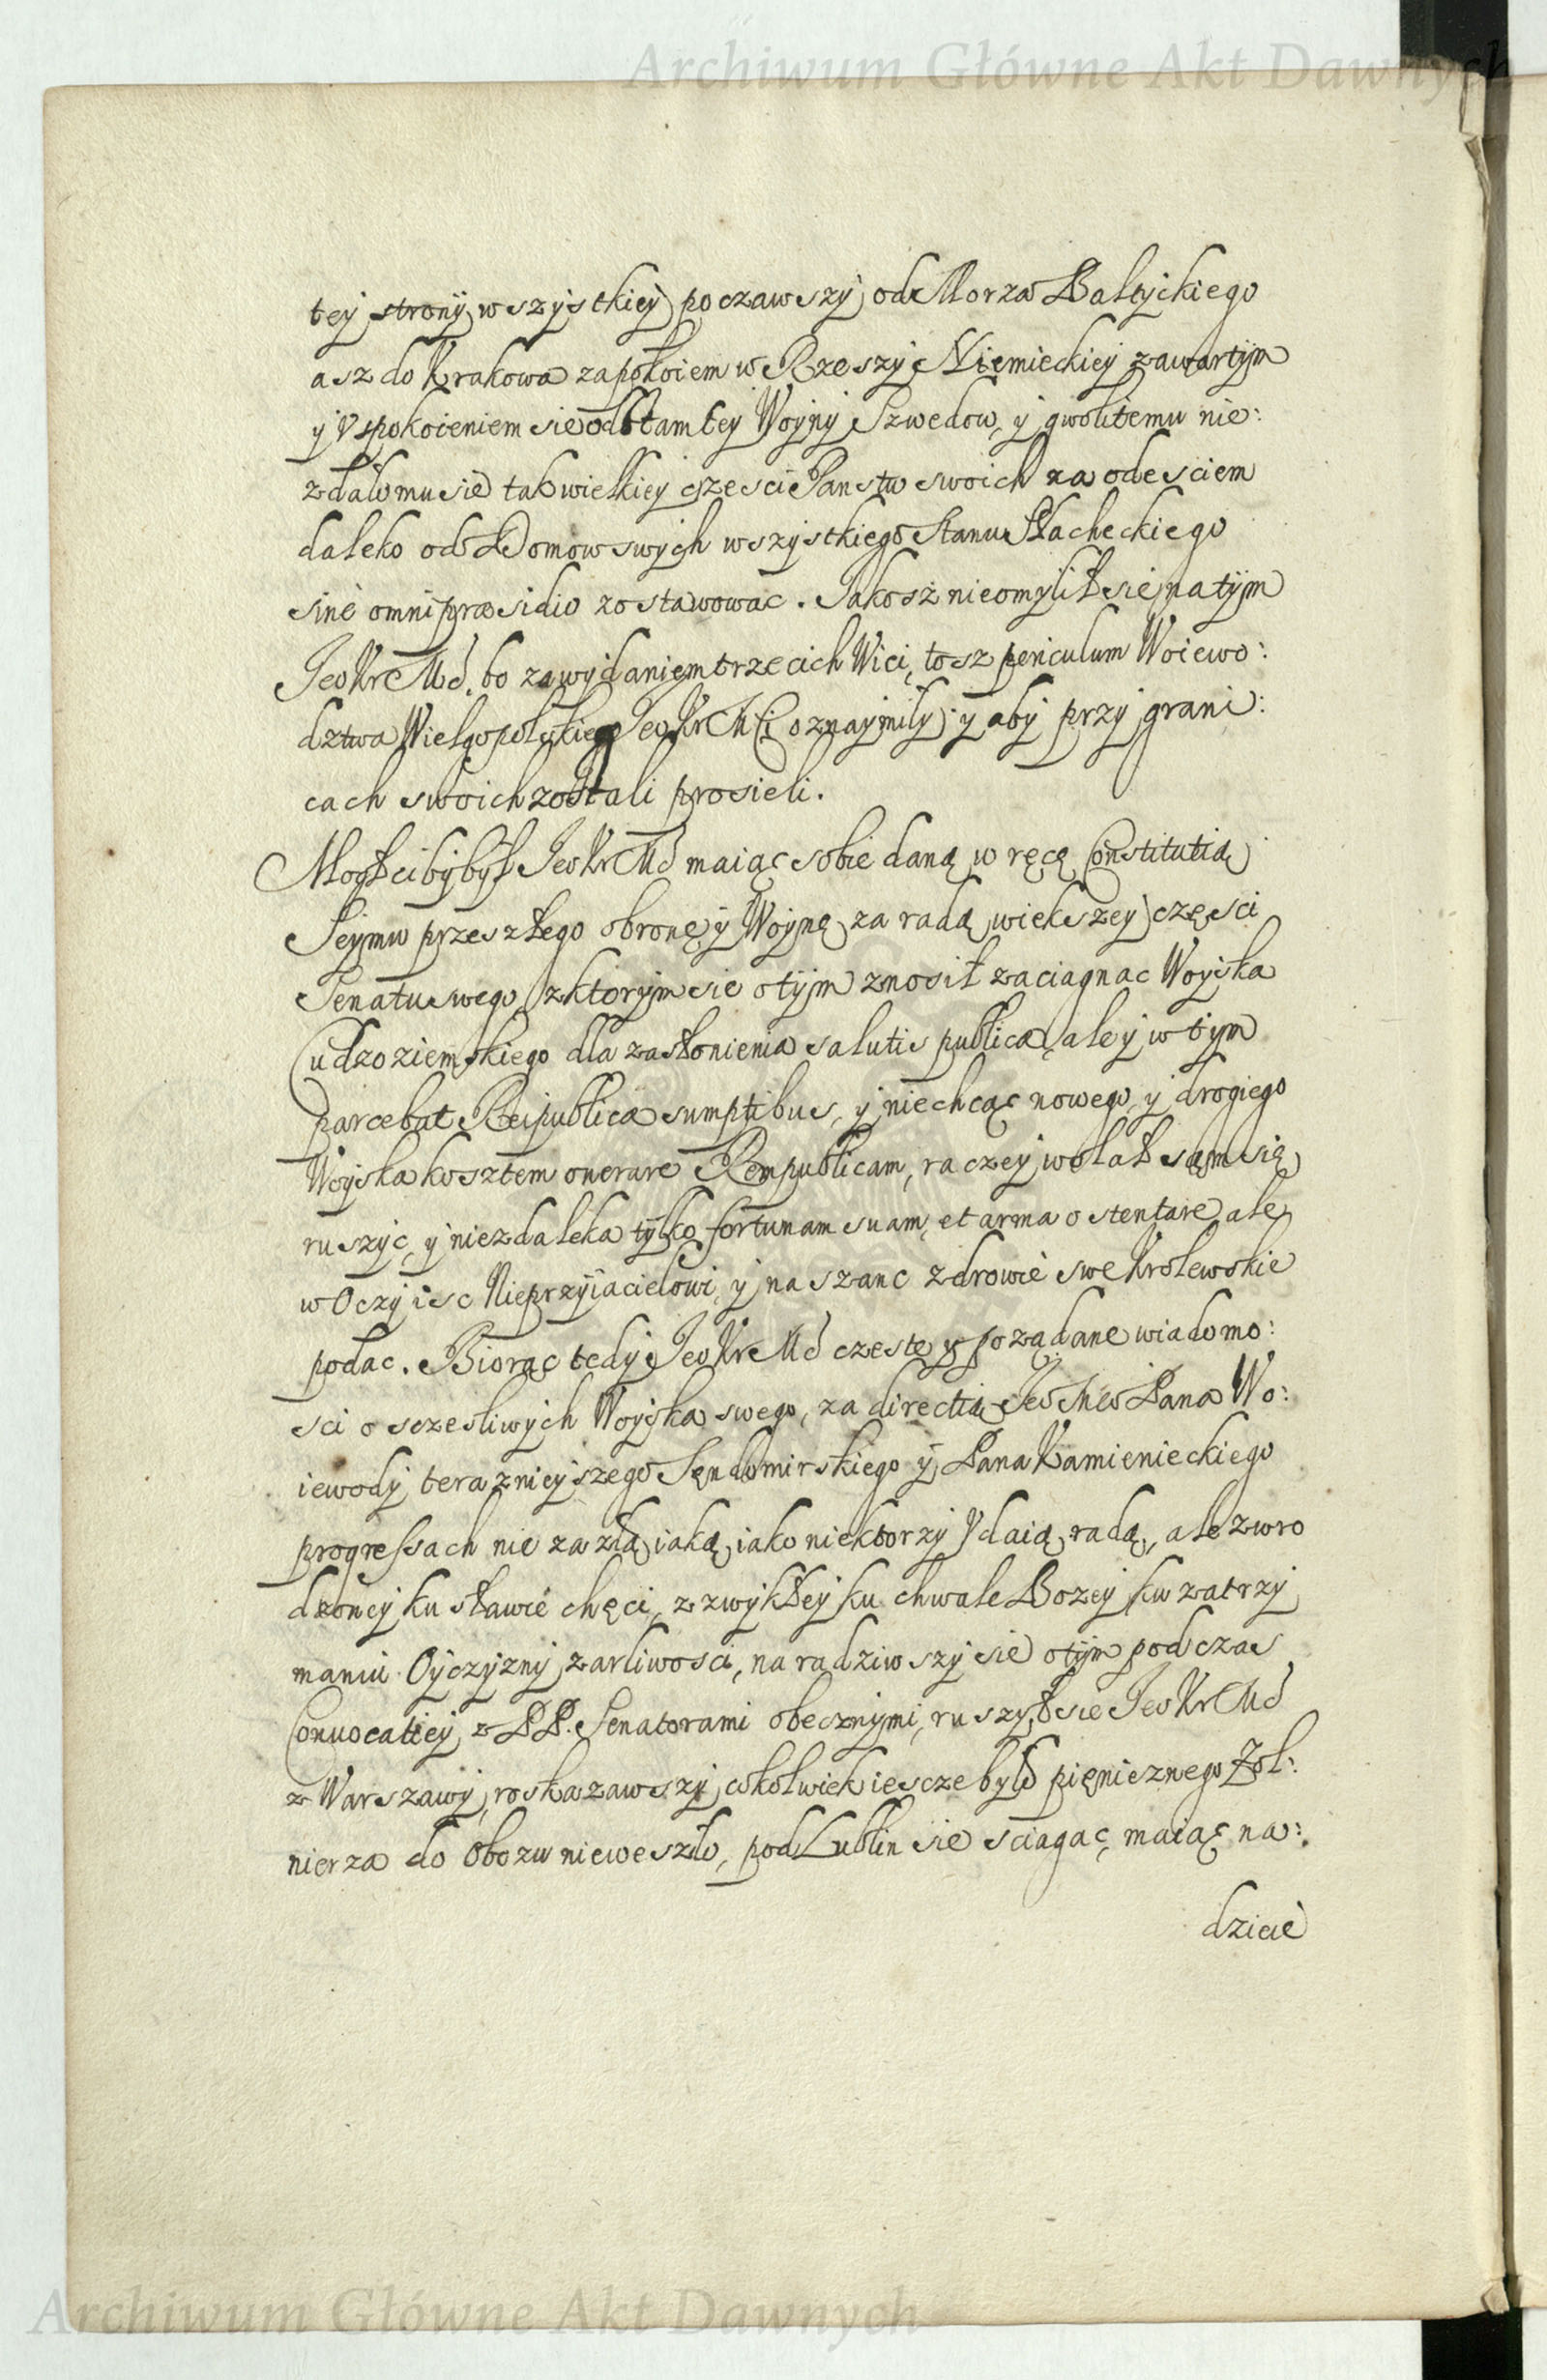 Archiwum Główne Akt Dawnych
tey strony wszystkiey począwszy od Morza Baltyckiego
asz do Krakowa za pokoiem w Rzeszy Niemieckiey zawartym
y Vspokoieniem sie od tamtey Woyny Szwedow, y gwoli temu nie:
zdało mu sie tak wielkiey częsci Panstw swoich za odesciem
daleko od Domow swych wszystkiego Stanu Slacheckiego
sine omni præsidio zostawowac. Jakosz nieomylił sie na tym
Jeo Kr Mć. bo za wydaniem trzecich Wici, tosz periculum Woiewo:
dztwa Wielgopolskie Jeo Kr Mci oznaymiły, y aby przy grani:
cach swoich zostali prosieli.
Mogł ci by był Jeo Kr Mć maiąc sobie daną w ręcę Constitutią
Seymu przeszłego obronę y Woynę za radą wiekszey częsci
Senatu swego, z ktorym sie o tym znosił zaciagnac Woyska
Cudzoziemskiego dla zasłonienia salutis publicæ, ale y w tym
parcebat Reipublicæ sumptibus, y niechcąc nowego, y drogiego
Woyska kosztem onerare Rempublicam, raczey wolał sam się
ruszyc, y niezdaleka tylko fortunam suam, et arma ostentare ale
w Oczy isc Nieprzyiacielowi, y na szanc zdrowie swe Krolewskie
podac. Biorąc tedy Jeo Kr Mć częste y pożądane wiadomo:
sci o sczesliwych Woyska swego, za directią Jeo Mći Pana Wo:
iewody teraznieyszego Sendomirskiego y Pana Kamienieckiego
progressach nie za złą iaką, iako niektorzy Vdaią, radą, ale z wro
dzoney ku sławie chęci, z zwykłey ku chwale Bozey ku zatrzy
maniu Oyczyzny zarliwosci, naradziwszy sie o tym podczas
Convocatiey z PP. Senatorami obecznymi, ruszył sie Jeo Kr Mć
z Warszawy, roskazawszy cokolwiek iescze było pięnieznego Zoł:
nierza do Obozu nieweszło, pod Lublin sie sciagać, maiąc na:
dzieie
Archiwum Główne Akt Dawnych